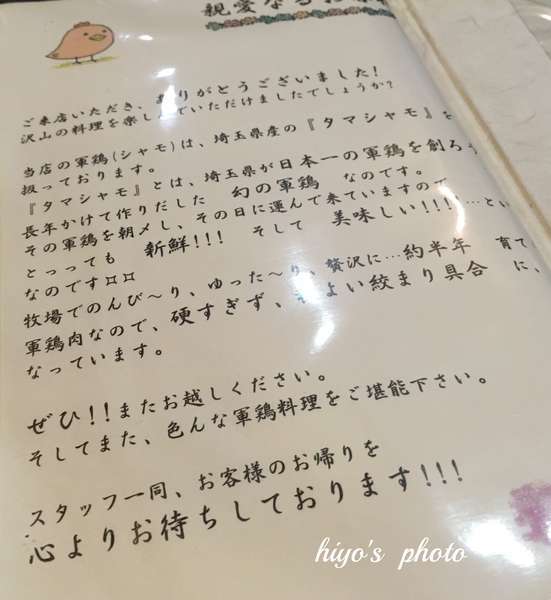 親愛なるお客様
ご来店いただき、ありがとうございました!
沢山の料理を楽しんでいただけましたでしょうか?
当店の軍鶏(シャモ)は、埼玉県産の『タマシャモ』を
扱っております。
『タマシャモ』とは、埼玉県が日本一の軍鶏を創ろう
長年かけて作りだした 幻の軍鶏 なのです。
その軍鶏を朝〆し、その日に運んで来ていますので
とっっても 新鮮!!! そして 美味しい!!!!…とい
なのです¤¤
牧場でのんび〜り、ゆった〜り、贅沢に…約半年 育て
軍鶏肉なので、硬すぎず、よい絞まり具合 に、
なっています。
ぜひ!!またお越しください。
そしてまた、色んな軍鶏料理をご堪能下さい。
スタッフ一同、お客様のお帰りを
心よりお待ちしております!!!
hiyo's photo